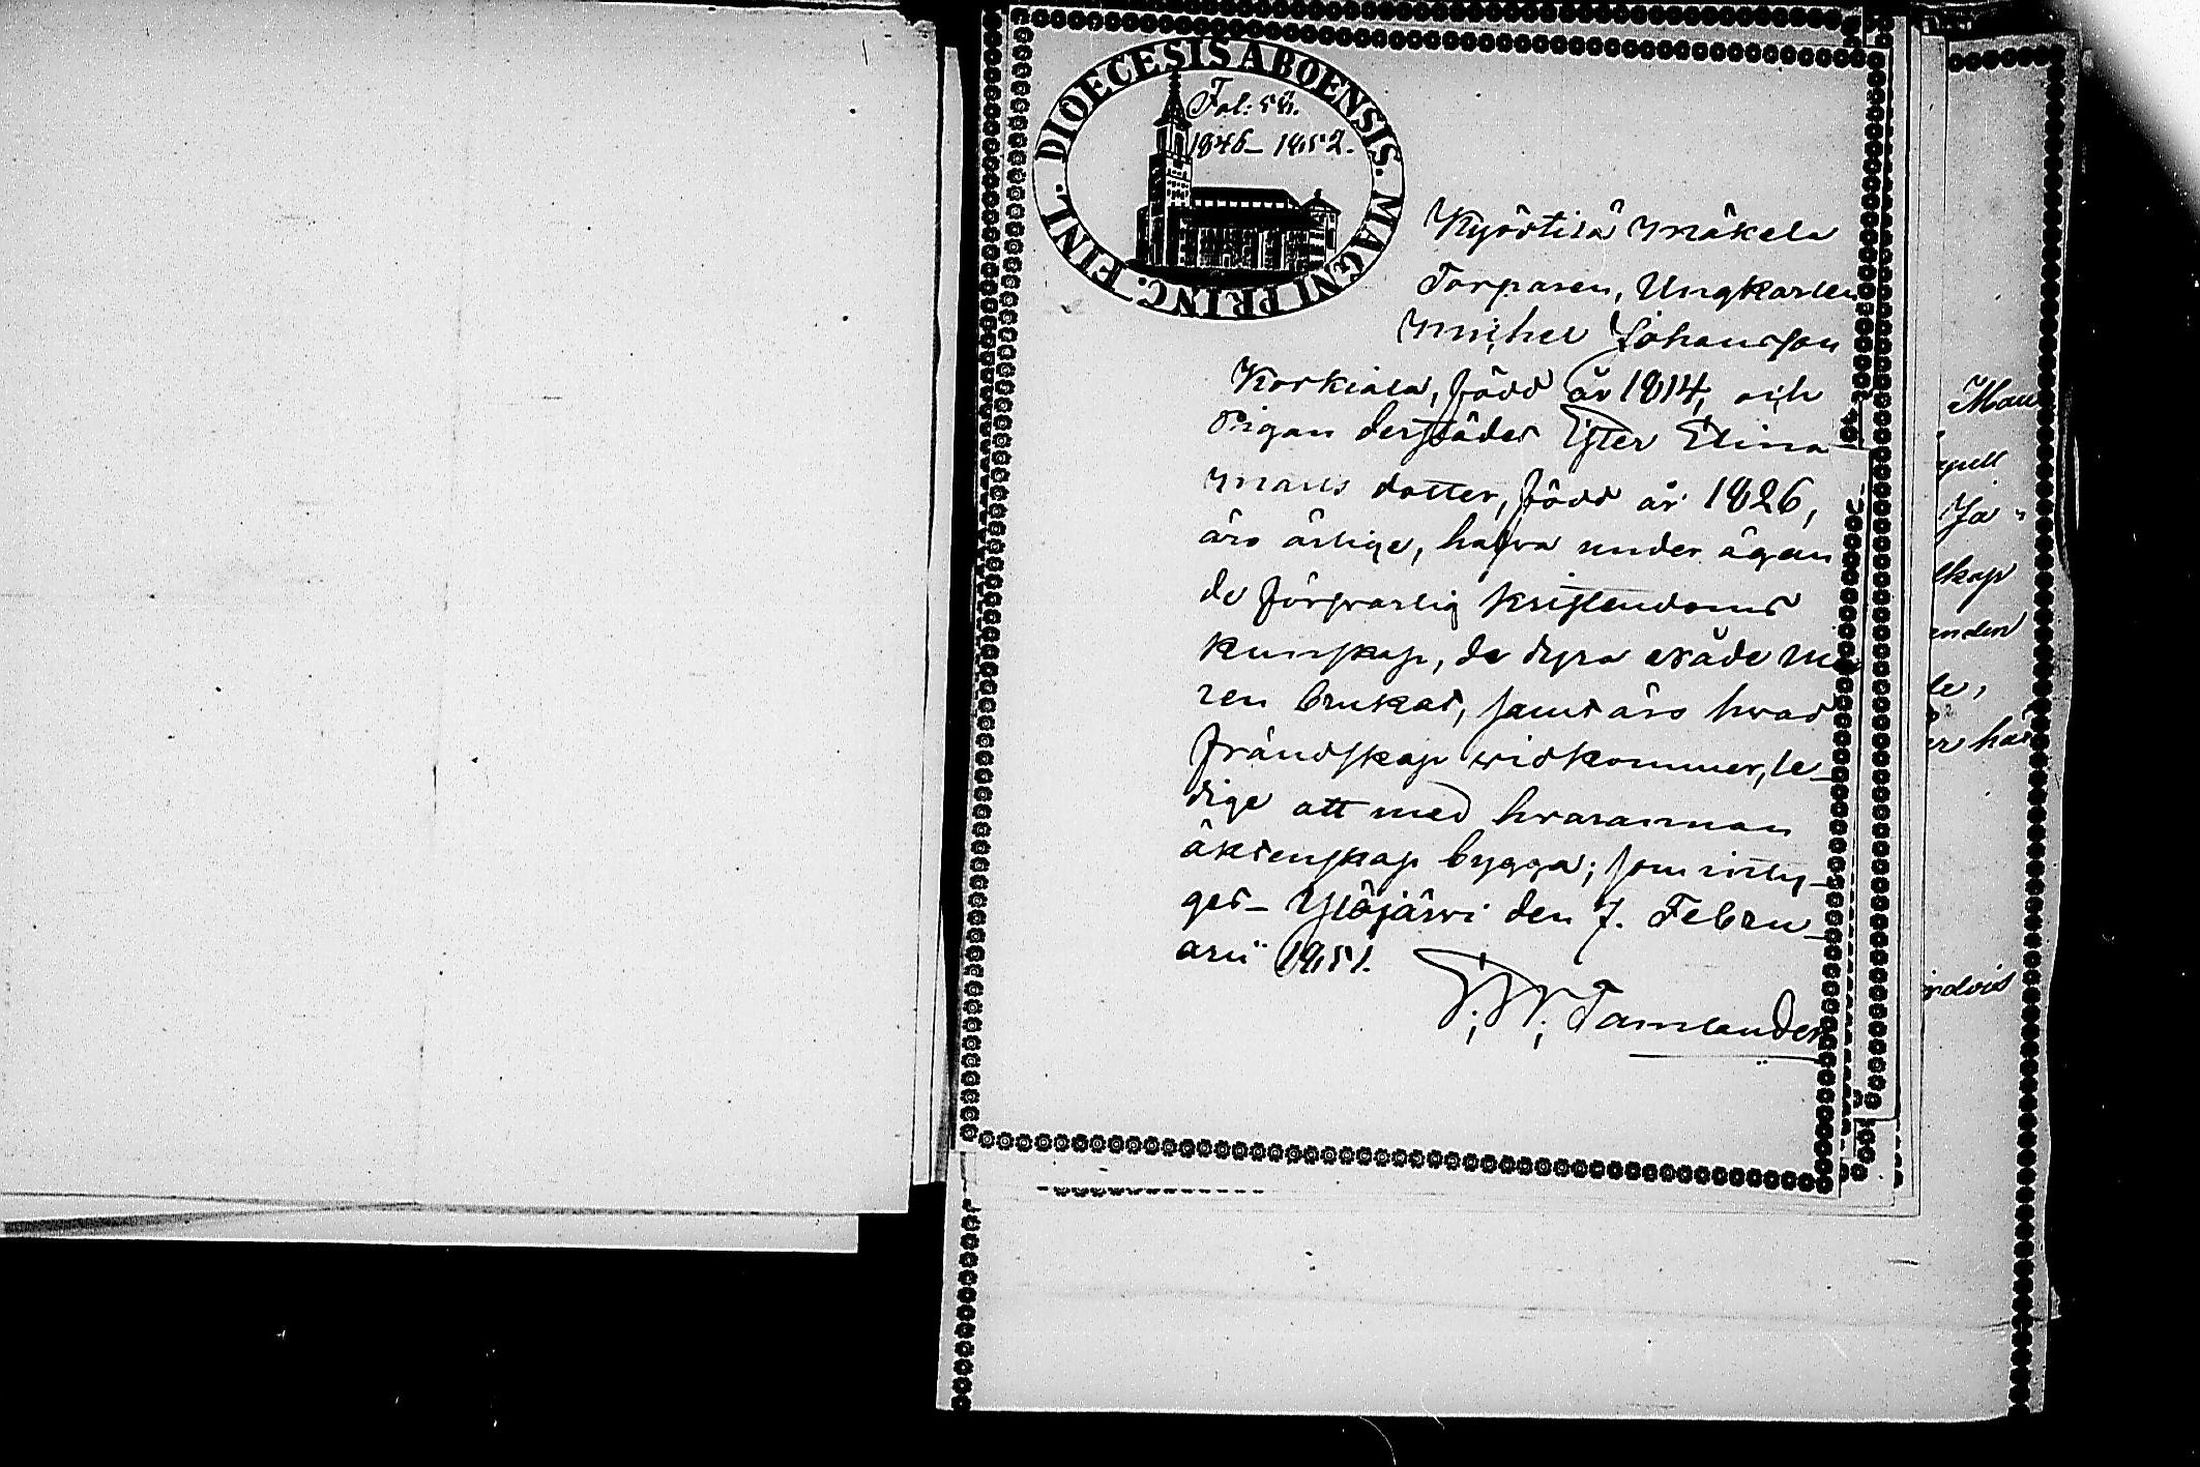 DIOECESIS ABOENSIS. MAGNI PRINC. FINL.
Fol: 58.
1846 – 1852.
Kyöstilä Mäkelä
Torparen, Ungkarlen
Michel Johansson
Korkiala, född år 1814, och
Pigan derstädes Ester Elina
Matts dotter, född år 1826,
äro ärlige, hafva under ägan
de försvarlig kristendoms
kunskap, de dyra nåde me
len brukat, samt äro hvad
frändskap widkommer, le-
dige att med hvarannan
äktenskap bygga; som intyg-
gas – Ylöjärvi den 7. Febru-
arii 1851.
F. W. Tamlander
Mau
gull
Ja-
skap
anden
le,
er här
ordvis